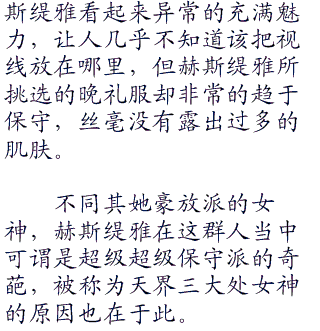 斯缇雅看起来异常的充满魅
力，让人几乎不知道该把视
线放在哪里，但赫斯缇雅所
挑选的晚礼服却非常的趋于
保守，丝毫没有露出过多的
肌肤。
不同其她豪放派的女
神，赫斯缇雅在这群人当中
可谓是超级超级保守派的奇
葩，被称为天界三大处女神
的原因也在于此。